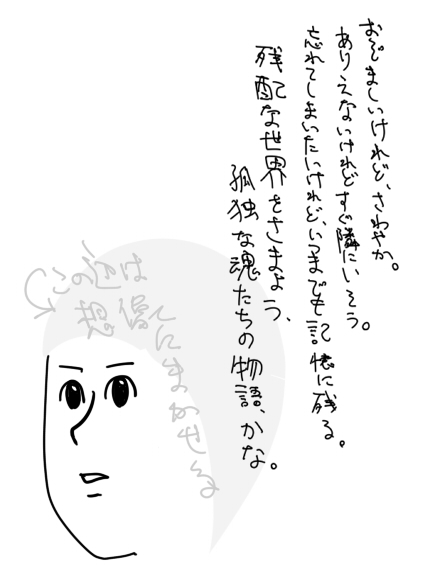 おぞましいけれど、さわやか。
ありえないけれどすぐ隣にいそう。
忘れてしまいたいけれど、いつまでも記憶に残る。
残酷な世界をさまよう、
孤独な魂たちの物語、かな。
この辺は
想像
にまかせる